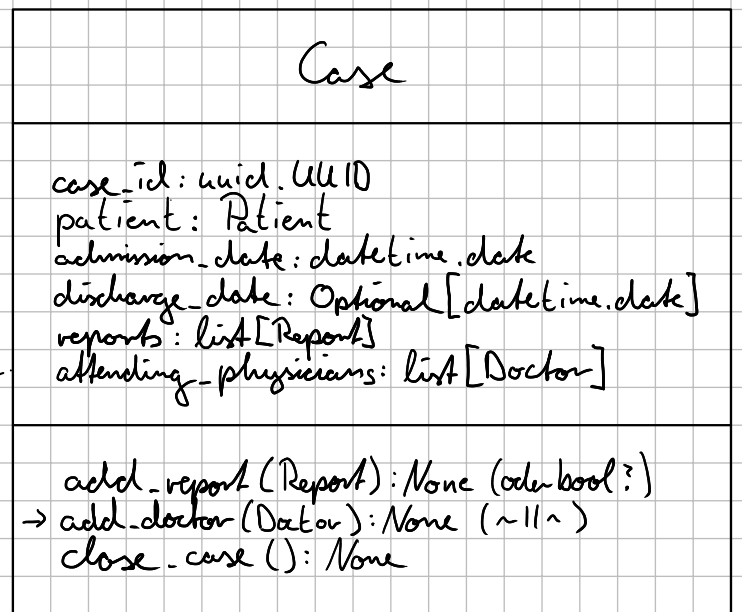 Case
case_id: uuid.UUID
patient: Patient
admission_date: datetime.date
discharge_date: Optional[datetime.date]
reports: list[Report]
attending_physicians: list[Doctor]
add_report(Report): None (oder bool?)
→ add_doctor(Doctor): None (~11~)
close_case(): None